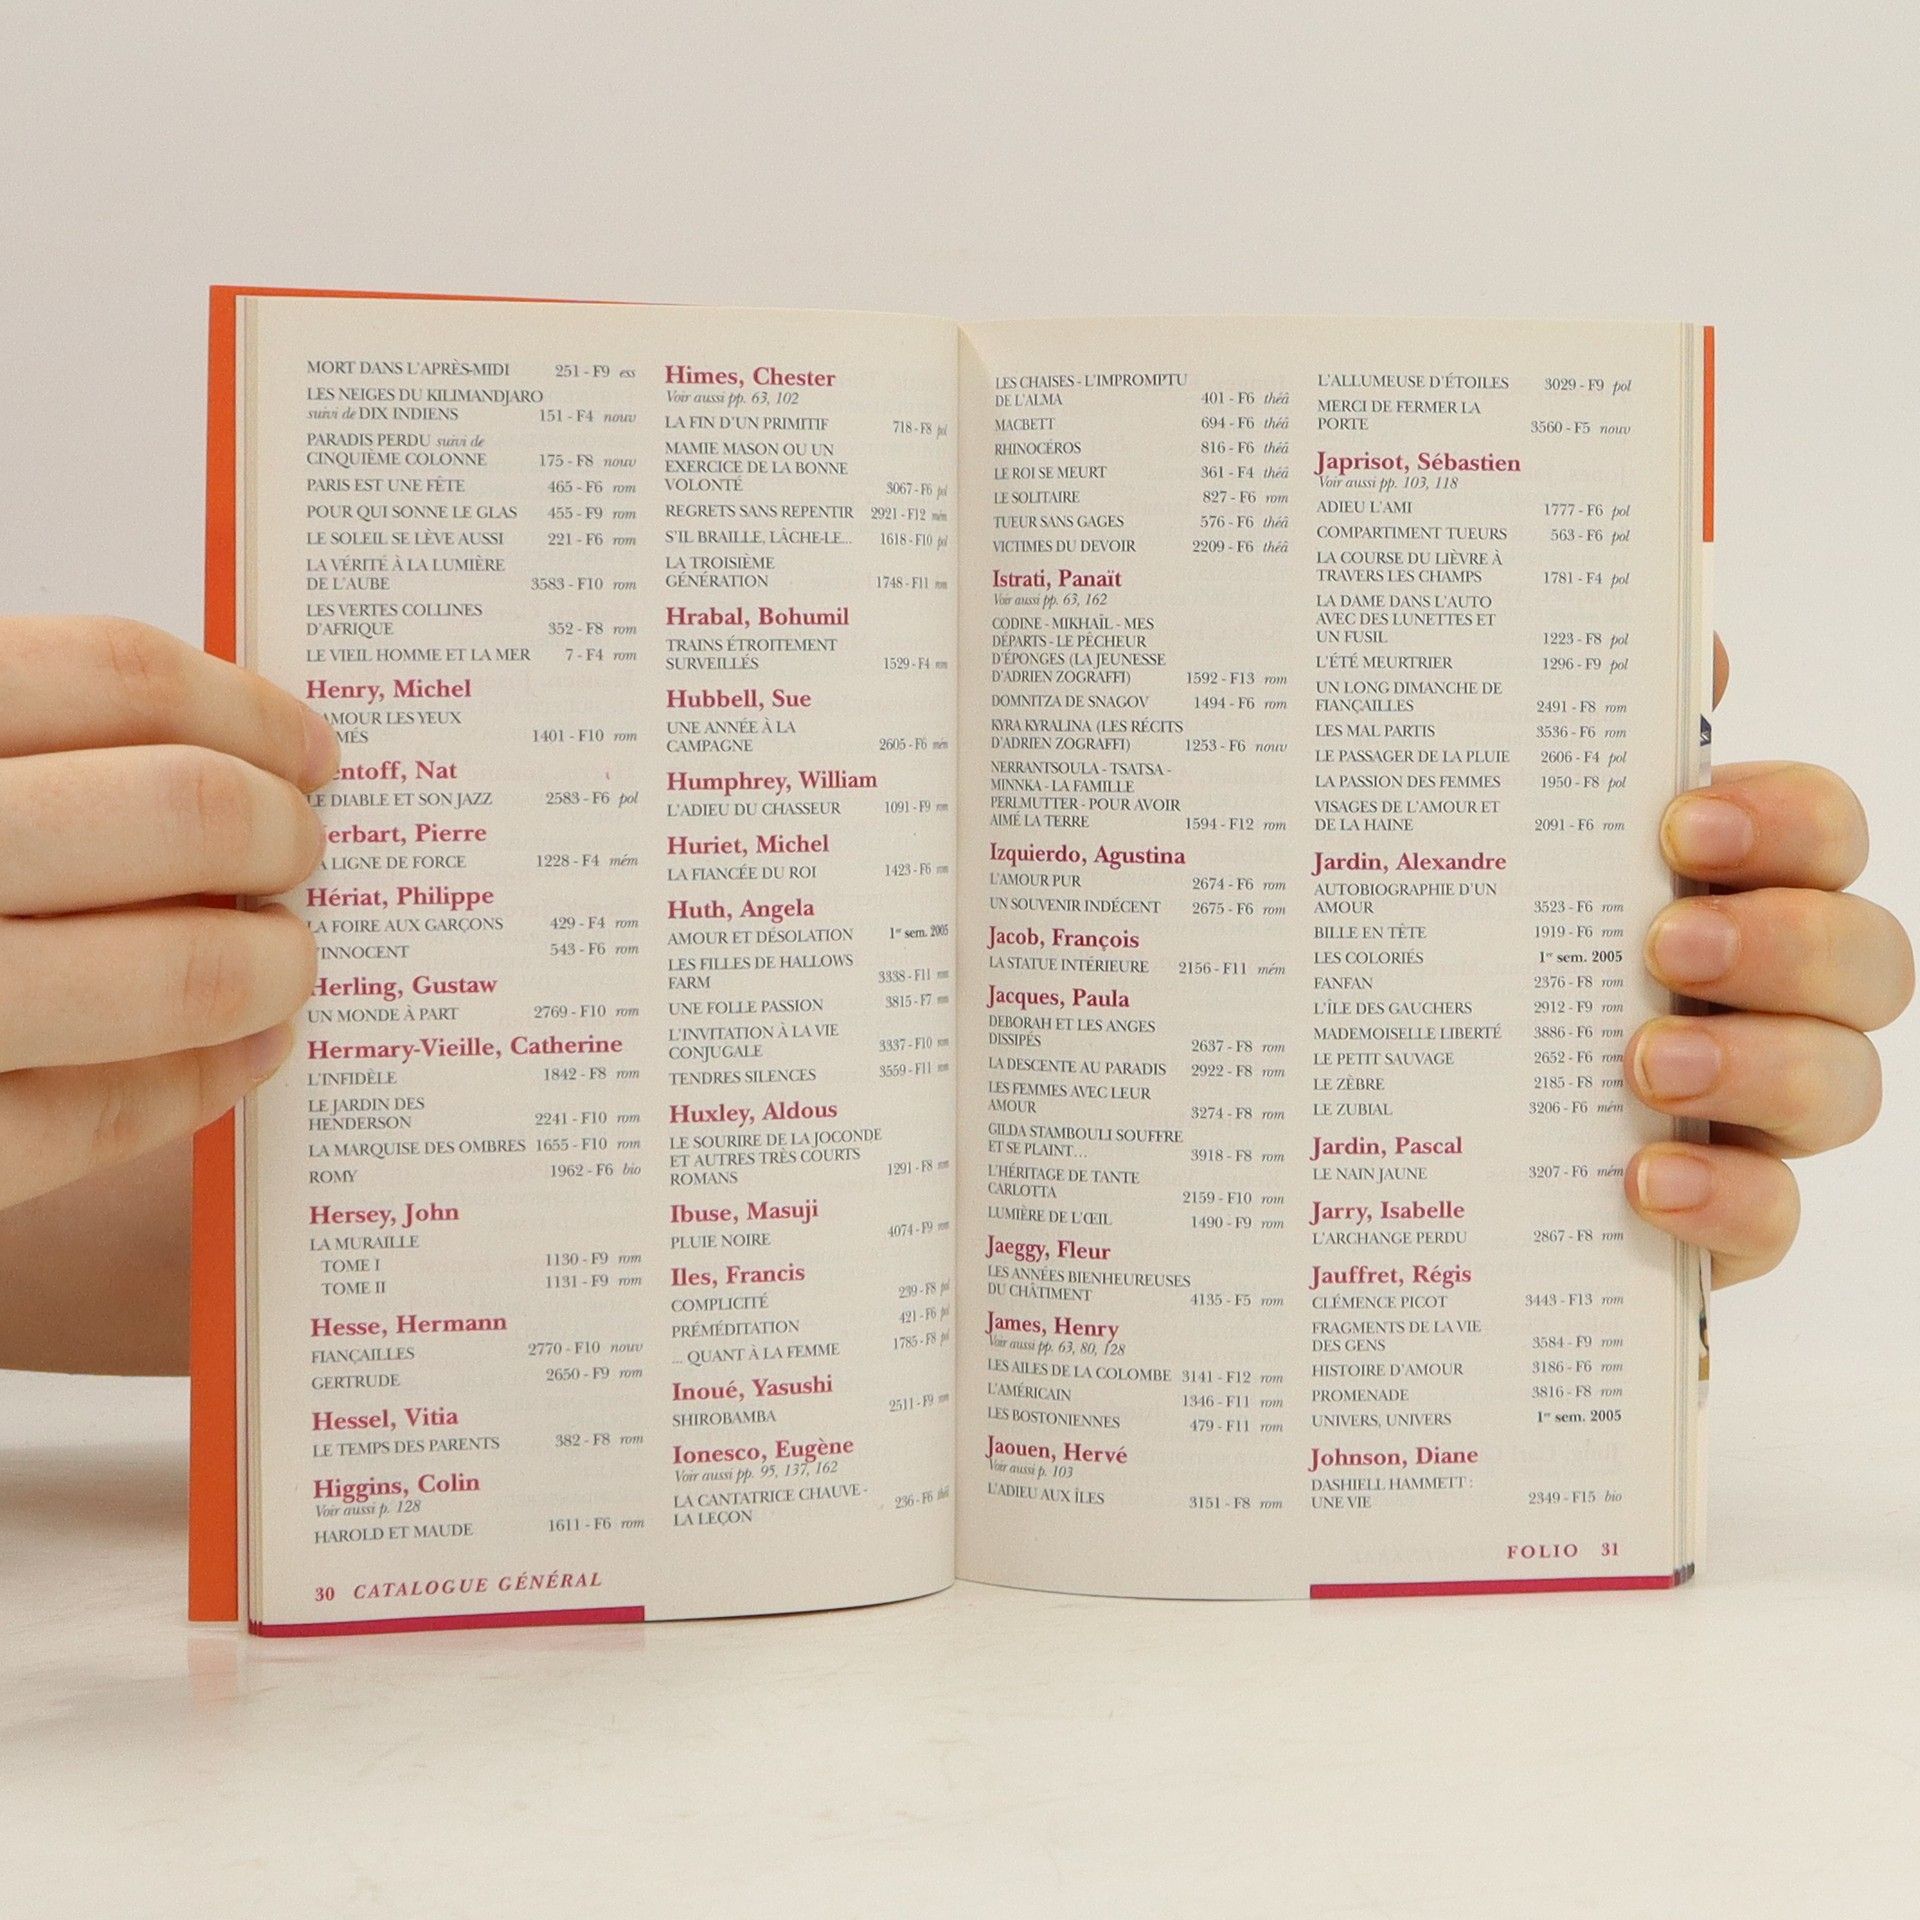 MORT DANS L'APRÈS-MIDI 251 - F9 ess
LES NEIGES DU KILIMANDJARO
suivi de DIX INDIENS 151 - F4 nouv
PARADIS PERDU suivi de
CINQUIÈME COLONNE 175 - F8 nouv
PARIS EST UNE FÊTE 465 - F6 rom
POUR QUI SONNE LE GLAS 455 - F9 rom
LE SOLEIL SE LÈVE AUSSI 221 - F6 rom
LA VÉRITÉ À LA LUMIÈRE
DE L'AUBE 3583 - F10 rom
LES VERTES COLLINES
D'AFRIQUE 352 - F8 rom
LE VIEIL HOMME ET LA MER 7 - F4 rom
Henry, Michel
AMOUR LES YEUX
MÉS 1401 - F10 rom
entoff, Nat
LE DIABLE ET SON JAZZ 2583 - F6 pol
erbart, Pierre
LA LIGNE DE FORCE 1228 - F4 mém
Hériat, Philippe
LA FOIRE AUX GARÇONS 429 - F4 rom
'INNOCENT 543 - F6 rom
Herling, Gustaw
UN MONDE À PART 2769 - F10 rom
Hermary-Vieille, Catherine
L'INFIDÈLE 1842 - F8 rom
LE JARDIN DES
HENDERSON 2241 - F10 rom
LA MARQUISE DES OMBRES 1655 - F10 rom
ROMY 1962 - F6 bio
Hersey, John
LA MURAILLE
TOME I 1130 - F9 rom
TOME II 1131 - F9 rom
Hesse, Hermann
FIANÇAILLES 2770 - F10 nouv
GERTRUDE 2650 - F9 rom
Hessel, Vitia
LE TEMPS DES PARENTS 382 - F8 rom
Higgins, Colin
Voir aussi p. 128
HAROLD ET MAUDE 1611 - F6 rom
30 CATALOGUE GÉNÉRAL
Himes, Chester
Voir aussi pp. 63, 102
LA FIN D'UN PRIMITIF 718 - F8 pol
MAMIE MASON OU UN
EXERCICE DE LA BONNE
VOLONTÉ 3067 - F6 pol
REGRETS SANS REPENTIR 2921 - F12 mém
S'IL BRAILLE, LÂCHE-LE... 1618 - F10 pol
LA TROISIÈME
GÉNÉRATION 1748 - F11 rom
Hrabal, Bohumil
TRAINS ÉTROITEMENT
SURVEILLÉS 1529 - F4 rom
Hubbell, Sue
UNE ANNÉE À LA
CAMPAGNE 2605 - F6 mém
Humphrey, William
L'ADIEU DU CHASSEUR 1091 - F9 rom
Huriet, Michel
LA FIANCÉE DU ROI 1423 - F6 rom
Huth, Angela
AMOUR ET DÉSOLATION 1er sem. 2005
LES FILLES DE HALLOWS
FARM 3338 - F11 rom
UNE FOLLE PASSION 3815 - F7 rom
L'INVITATION À LA VIE
CONJUGALE 3337 - F10 rom
TENDRES SILENCES 3559 - F11 rom
Huxley, Aldous
LE SOURIRE DE LA JOCONDE
ET AUTRES TRÈS COURTS
ROMANS 1291 - F8 rom
Ibuse, Masuji
PLUIE NOIRE 4074 - F9 rom
Iles, Francis
COMPLICITÉ 239 - F8 pol
PRÉMÉDITATION 421 - F6 pol
... QUANT À LA FEMME 1785 - F8 pol
Inoué, Yasushi
SHIROBAMBA 2511 - F9 rom
Ionesco, Eugène
Voir aussi pp. 95, 137, 162
LA CANTATRICE CHAUVE -
LA LEÇON 236 - F6 théâ
LES CHAISES - L'IMPROMPTU
DE L'ALMA 401 - F6 théâ
MACBETT 694 - F6 théâ
RHINOCÉROS 816 - F6 théâ
LE ROI SE MEURT 361 - F4 théâ
LE SOLITAIRE 827 - F6 rom
TUEUR SANS GAGES 576 - F6 théâ
VICTIMES DU DEVOIR 2209 - F6 théâ
Istrati, Panaït
Voir aussi pp. 63, 162
CODINE - MIKHAÏL - MES
DÉPARTS - LE PÊCHEUR
D'ÉPONGES (LA JEUNESSE
D'ADRIEN ZOGRAFFI) 1592 - F13 rom
DOMNITZA DE SNAGOV 1494 - F6 rom
KYRA KYRALINA (LES RÉCITS
D'ADRIEN ZOGRAFFI) 1253 - F6 nouv
NERRANTSOULA - TSATSA -
MINNKA - LA FAMILLE
PERLMUTTER - POUR AVOIR
AIMÉ LA TERRE 1594 - F12 rom
Izquierdo, Agustina
L'AMOUR PUR 2674 - F6 rom
UN SOUVENIR INDÉCENT 2675 - F6 rom
Jacob, François
LA STATUE INTÉRIEURE 2156 - F11 mém
Jacques, Paula
DEBORAH ET LES ANGES
DISSIPÉS 2637 - F8 rom
LA DESCENTE AU PARADIS 2922 - F8 rom
LES FEMMES AVEC LEUR
AMOUR 3274 - F8 rom
GILDA STAMBOULI SOUFFRE
ET SE PLAINT... 3918 - F8 rom
L'HÉRITAGE DE TANTE
CARLOTTA 2159 - F10 rom
LUMIÈRE DE L'ŒIL 1490 - F9 rom
Jaeggy, Fleur
LES ANNÉES BIENHEUREUSES
DU CHÂTIMENT 4135 - F5 rom
James, Henry
Voir aussi pp. 63, 80, 128
LES AILES DE LA COLOMBE 3141 - F12 rom
L'AMÉRICAIN 1346 - F11 rom
LES BOSTONIENNES 479 - F11 rom
Jaouen, Hervé
Voir aussi p. 103
L'ADIEU AUX ÎLES 3151 - F8 rom
L'ALLUMEUSE D'ÉTOILES 3029 - F9 pol
MERCI DE FERMER LA
PORTE 3560 - F5 nouv
Japrisot, Sébastien
Voir aussi pp. 103, 118
ADIEU L'AMI 1777 - F6 pol
COMPARTIMENT TUEURS 563 - F6 pol
LA COURSE DU LIÈVRE À
TRAVERS LES CHAMPS 1781 - F4 pol
LA DAME DANS L'AUTO
AVEC DES LUNETTES ET
UN FUSIL 1223 - F8 pol
L'ÉTÉ MEURTRIER 1296 - F9 pol
UN LONG DIMANCHE DE
FIANÇAILLES 2491 - F8 rom
LES MAL PARTIS 3536 - F6 rom
LE PASSAGER DE LA PLUIE 2606 - F4 pol
LA PASSION DES FEMMES 1950 - F8 pol
VISAGES DE L'AMOUR ET
DE LA HAINE 2091 - F6 rom
Jardin, Alexandre
AUTOBIOGRAPHIE D'UN
AMOUR 3523 - F6 rom
BILLE EN TÊTE 1919 - F6 rom
LES COLORIÉS 1er sem. 2005
FANFAN 2376 - F8 rom
L'ÎLE DES GAUCHERS 2912 - F9 rom
MADEMOISELLE LIBERTÉ 3886 - F6 rom
LE PETIT SAUVAGE 2652 - F6 rom
LE ZÈBRE 2185 - F8 rom
LE ZUBIAL 3206 - F6 mém
Jardin, Pascal
LE NAIN JAUNE 3207 - F6 mém
Jarry, Isabelle
L'ARCHANGE PERDU 2867 - F8 rom
Jauffret, Régis
CLÉMENCE PICOT 3443 - F13 rom
FRAGMENTS DE LA VIE
DES GENS 3584 - F9 rom
HISTOIRE D'AMOUR 3186 - F6 rom
PROMENADE 3816 - F8 rom
UNIVERS, UNIVERS 1er sem. 2005
Johnson, Diane
DASHIELL HAMMETT :
UNE VIE 2349 - F15 bio
FOLIO 31